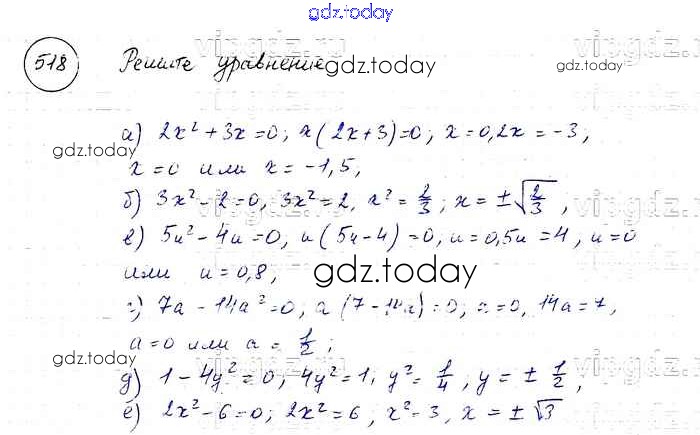 gdz.today
518 Решите уравнение gdz.today gdz.today
а) 2x² + 3x = 0; x(2x+3)=0; x=0, 2x = -3,
gdz.today
x = 0 или x = -1,5;
б) 3x² - 2 = 0, 3x² = 2, x² = 2/3; x = ±√(2/3),
gdz.today
в) 5u² - 4u = 0, u(5u-4) = 0, u = 0, 5u = 4, u = 0
или u = 0,8, gdz.today
г) 7a - 14a² = 0; a(7-14a) = 0; a = 0, 14a = 7,
a = 0 или a = 1/2;
gdz.today
д) 1 - 4y² = 0, 4y² = 1, y² = 1/4; y = ± 1/2,
е) 2x² - 6 = 0; 2x² = 6, x² - 3, x = ±√3
gdz.today